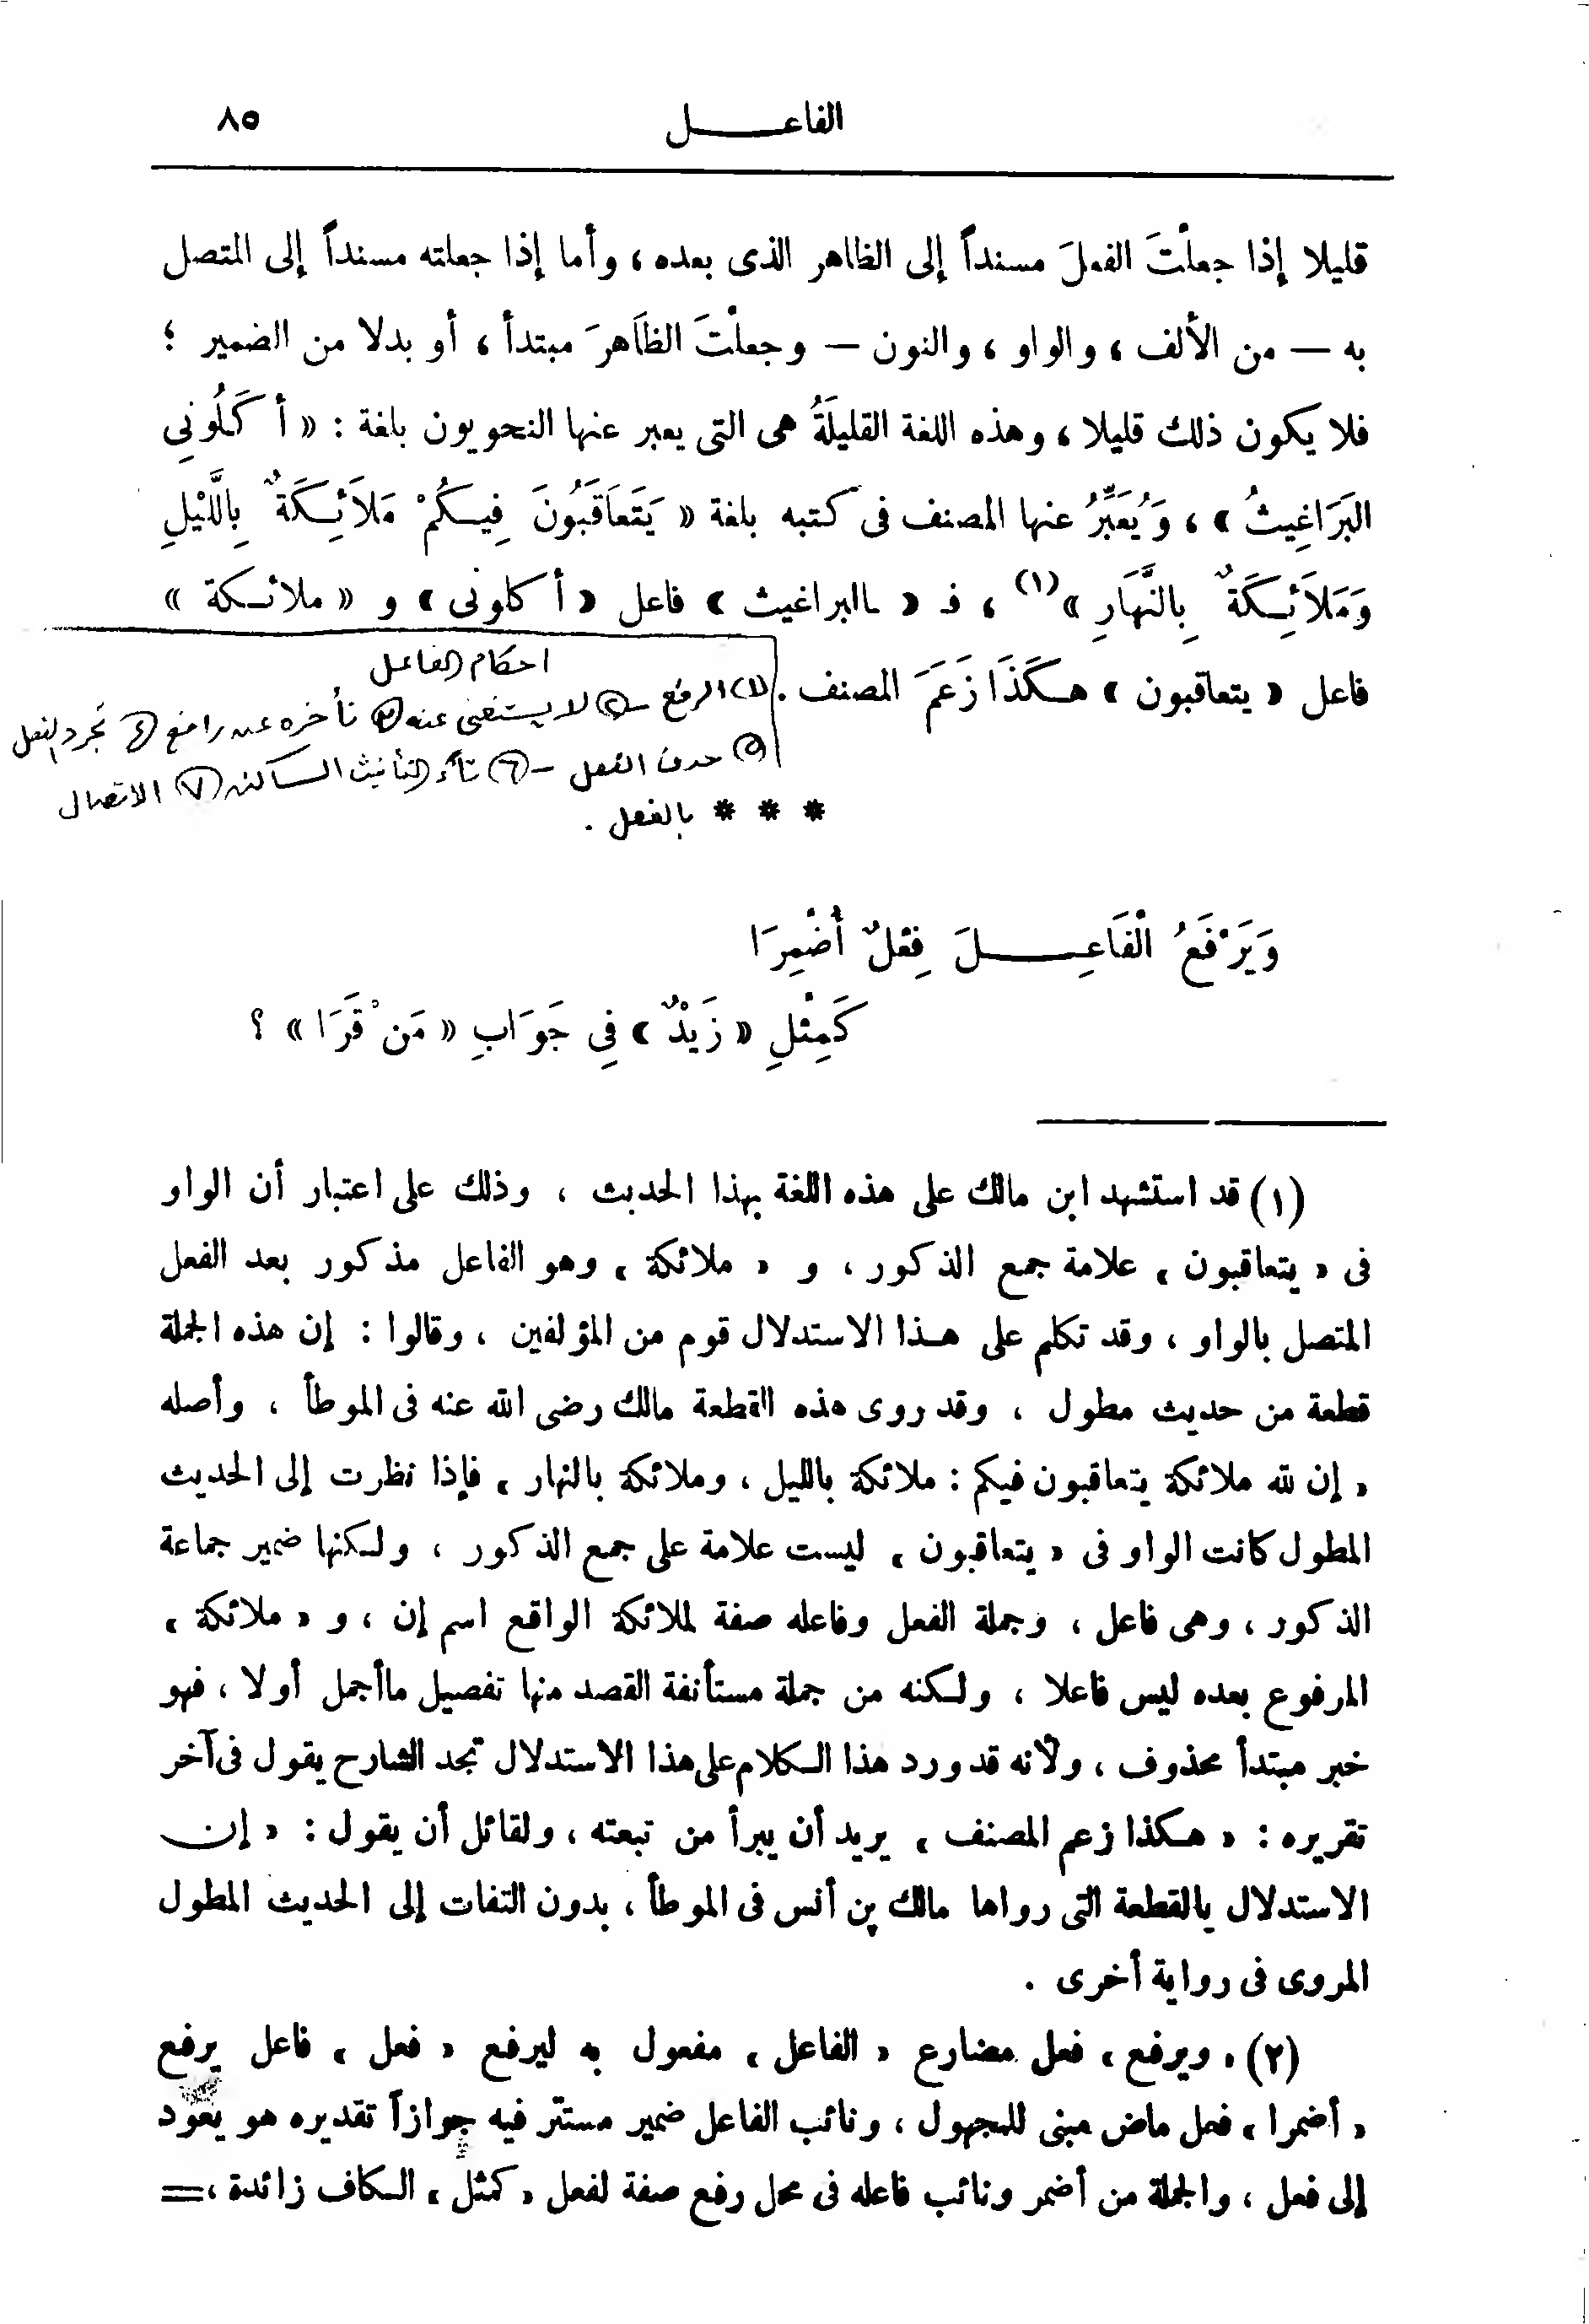 الفاعــــل ٨٥
قليلا إذا جعلْتَ الفعلَ مسنداً إلى الظاهر الذى بعده ، وأما إذا جعلته مسنداً إلى المتصل
به — من الألف ، والواو ، والنون — وجعلْتَ الظاَهرَ مبتدأ ، أو بدلا من الضمير ؛
فلا يكون ذلك قليلا ، وهذه اللغة القليلَةُ هى التى يعبر عنها النحويون بلغة : « أ كَلُونِى
البَرَاغِيثُ » ، وَيُعَبِّرُ عنها المصنف فى كتبه بلغة « يَتَعَاقَبُونَ فِيكُمْ مَلاَئِكَةٌ بِاللَّيْلِ
وَمَلاَئِكَةٌ بِالنَّهَارِ »(١) ، فـ « ـالبراغيث » فاعل « أ كلونى » و « ملائكة »
فاعل « يتعاقبون » هكَذَا زَعَمَ المصنف .
احكام الفاعل
(١) الرفع - (٢) لا يستغنى عنه (٣) تأخره عن رافع (٤) تجرد الفعل
(٥) حذف الفعل - (٦) تاء التأنيث الساكنه (٧) الاتصال
بالفعل .
* * *
وَيَرْفَعُ الْفَاعِــــلَ فِعْلٌ أُضْمِرَا
كَمِثْلِ « زَيْدٌ » فِى جَوَابِ « مَنْ قَرَا » ؟
(١) قد استشهد ابن مالك على هذه اللغة بهذا الحديث ، وذلك على اعتبار أن الواو
فى « يتعاقبون » علامة جمع الذكور ، و « ملائكة » وهو الفاعل مذكور بعد الفعل
المتصل بالواو ، وقد تكلم على هذا الاستدلال قوم من المؤلفين ، وقالوا : إن هذه الجملة
قطعة من حديث مطول ، وقد روى هذه القطعة مالك رضى الله عنه فى الموطأ ، وأصله
« إن لله ملائكة يتعاقبون فيكم : ملائكة بالليل ، وملائكة بالنهار » فإذا نظرت إلى الحديث
المطول كانت الواو فى « يتعاقبون » ليست علامة على جمع الذكور ، ولكنها ضمير جماعة
الذكور ، وهى فاعل ، وجملة الفعل وفاعله صفة لملائكة الواقع اسم إن ، و « ملائكة »
المرفوع بعده ليس فاعلا ، ولكنه من جملة مستأنفة القصد منها تفصيل ماأجمل أولا ، فهو
خبر مبتدأ محذوف ، ولأنه قد ورد هذا الكلام على هذا الاستدلال تجد الشارح يقول فى آخر
تقريره : « هكذا زعم المصنف » يريد أن يبرأ من تبعته ، ولقائل أن يقول : « إن
الاستدلال بالقطعة التى رواها مالك بن أنس فى الموطأ ، بدون التفات إلى الحديث المطول
المروى فى رواية أخرى .
(٢) « ويرفع » فعل مضارع « الفاعل » مفعول به ليرفع « فعل » فاعل يرفع
« أضمرا » فعل ماض مبنى للمجهول ، ونائب الفاعل ضمير مستتر فيه جوازاً تقديره هو يعود
إلى فعل ، والجملة من أضمر ونائب فاعله فى محل رفع صفة لفعل « كمثل » الكاف زائدة ،=